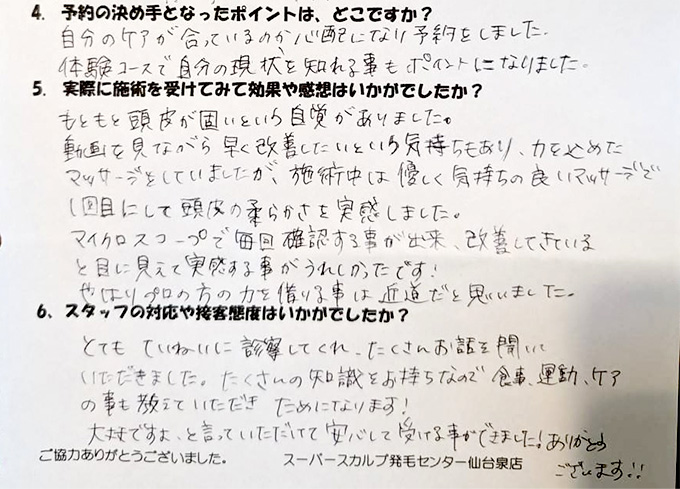 4. 予約の決め手となったポイントは、どこですか？
自分のケアが合っているのか心配になり予約をしました。
体験コースで自分の現状を知れる事もポイントになりました。
5. 実際に施術を受けてみて効果や感想はいかがでしたか？
もともと頭皮が固いという自覚がありました。
動画を見ながら早く改善したいという気持ちもあり、力を込めた
マッサージをしていましたが、施術中は優しく気持ちの良いマッサージで
1回目にして頭皮の柔らかさを実感しました。
マイクロスコープで毎回確認する事が出来、改善してきている
と目に見えて実感する事がうれしかったです!
やはりプロの方の力を借りる事は近道だと思いました。
6. スタッフの対応や接客態度はいかがでしたか？
とてもていねいに診察してくれ、たくさんお話を聞いて
いただきました。たくさんの知識をお持ちなので食事、運動、ケア
の事も教えていただきためになります!
大丈夫ですよ、と言っていただけて安心して受ける事ができました!ありがとう
ございます!!
ご協力ありがとうございました。 スーパースカルプ発毛センター仙台泉店